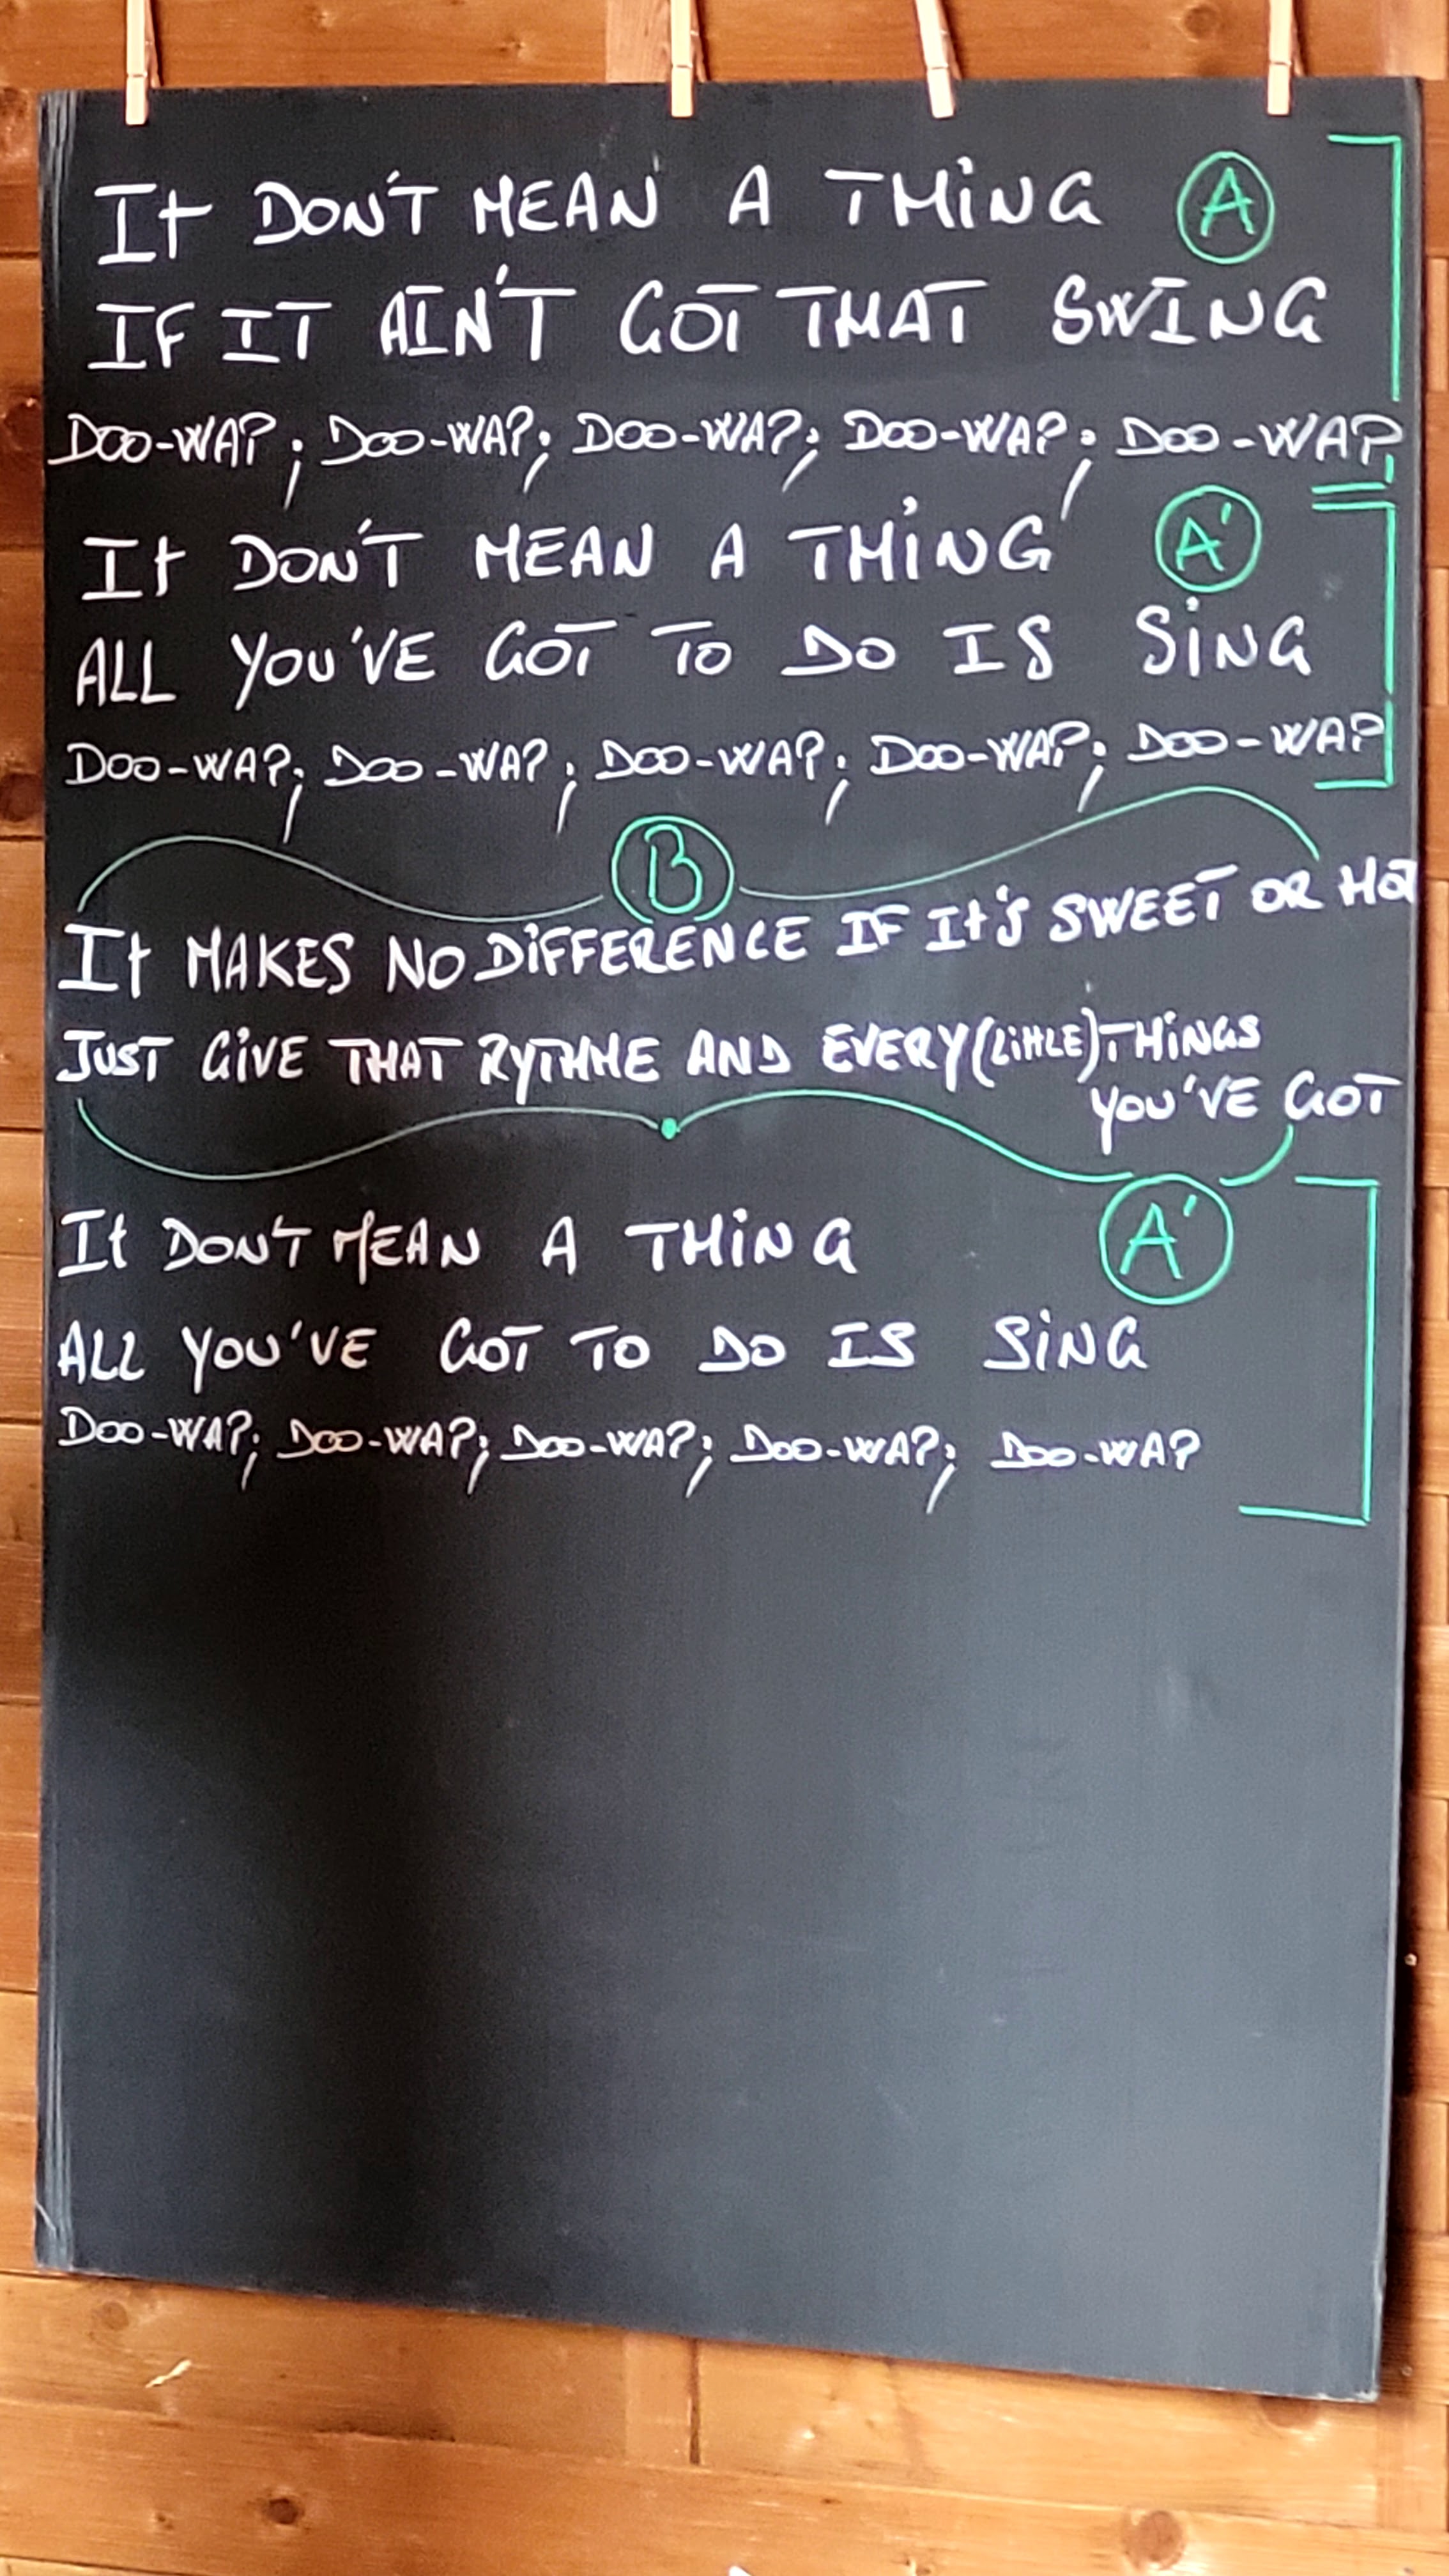 It DON'T MEAN A THiNG Ⓐ
IF IT AIN'T GOT THAT SWING
Doo-WAP; Doo-WAP; Doo-WAP; Doo-WAP; Doo-WAP
It DON'T MEAN A THiNG A'
ALL YOU'VE GOT TO DO IS SiNG
Doo-WAP; Doo-WAP; Doo-WAP; Doo-WAP; Doo-WAP
Ⓑ
It MAKES NO DiFFERENCE IF It'S SWEET OR HOT
JUST GiVE THAT RYTHME AND EVERY (LittLE) THiNGS
YOU'VE GOT
It DON'T MEAN A THiNG A'
ALL YOU'VE GOT TO DO IS SiNG
Doo-WAP; Doo-WAP; Doo-WAP; Doo-WAP; Doo-WAP